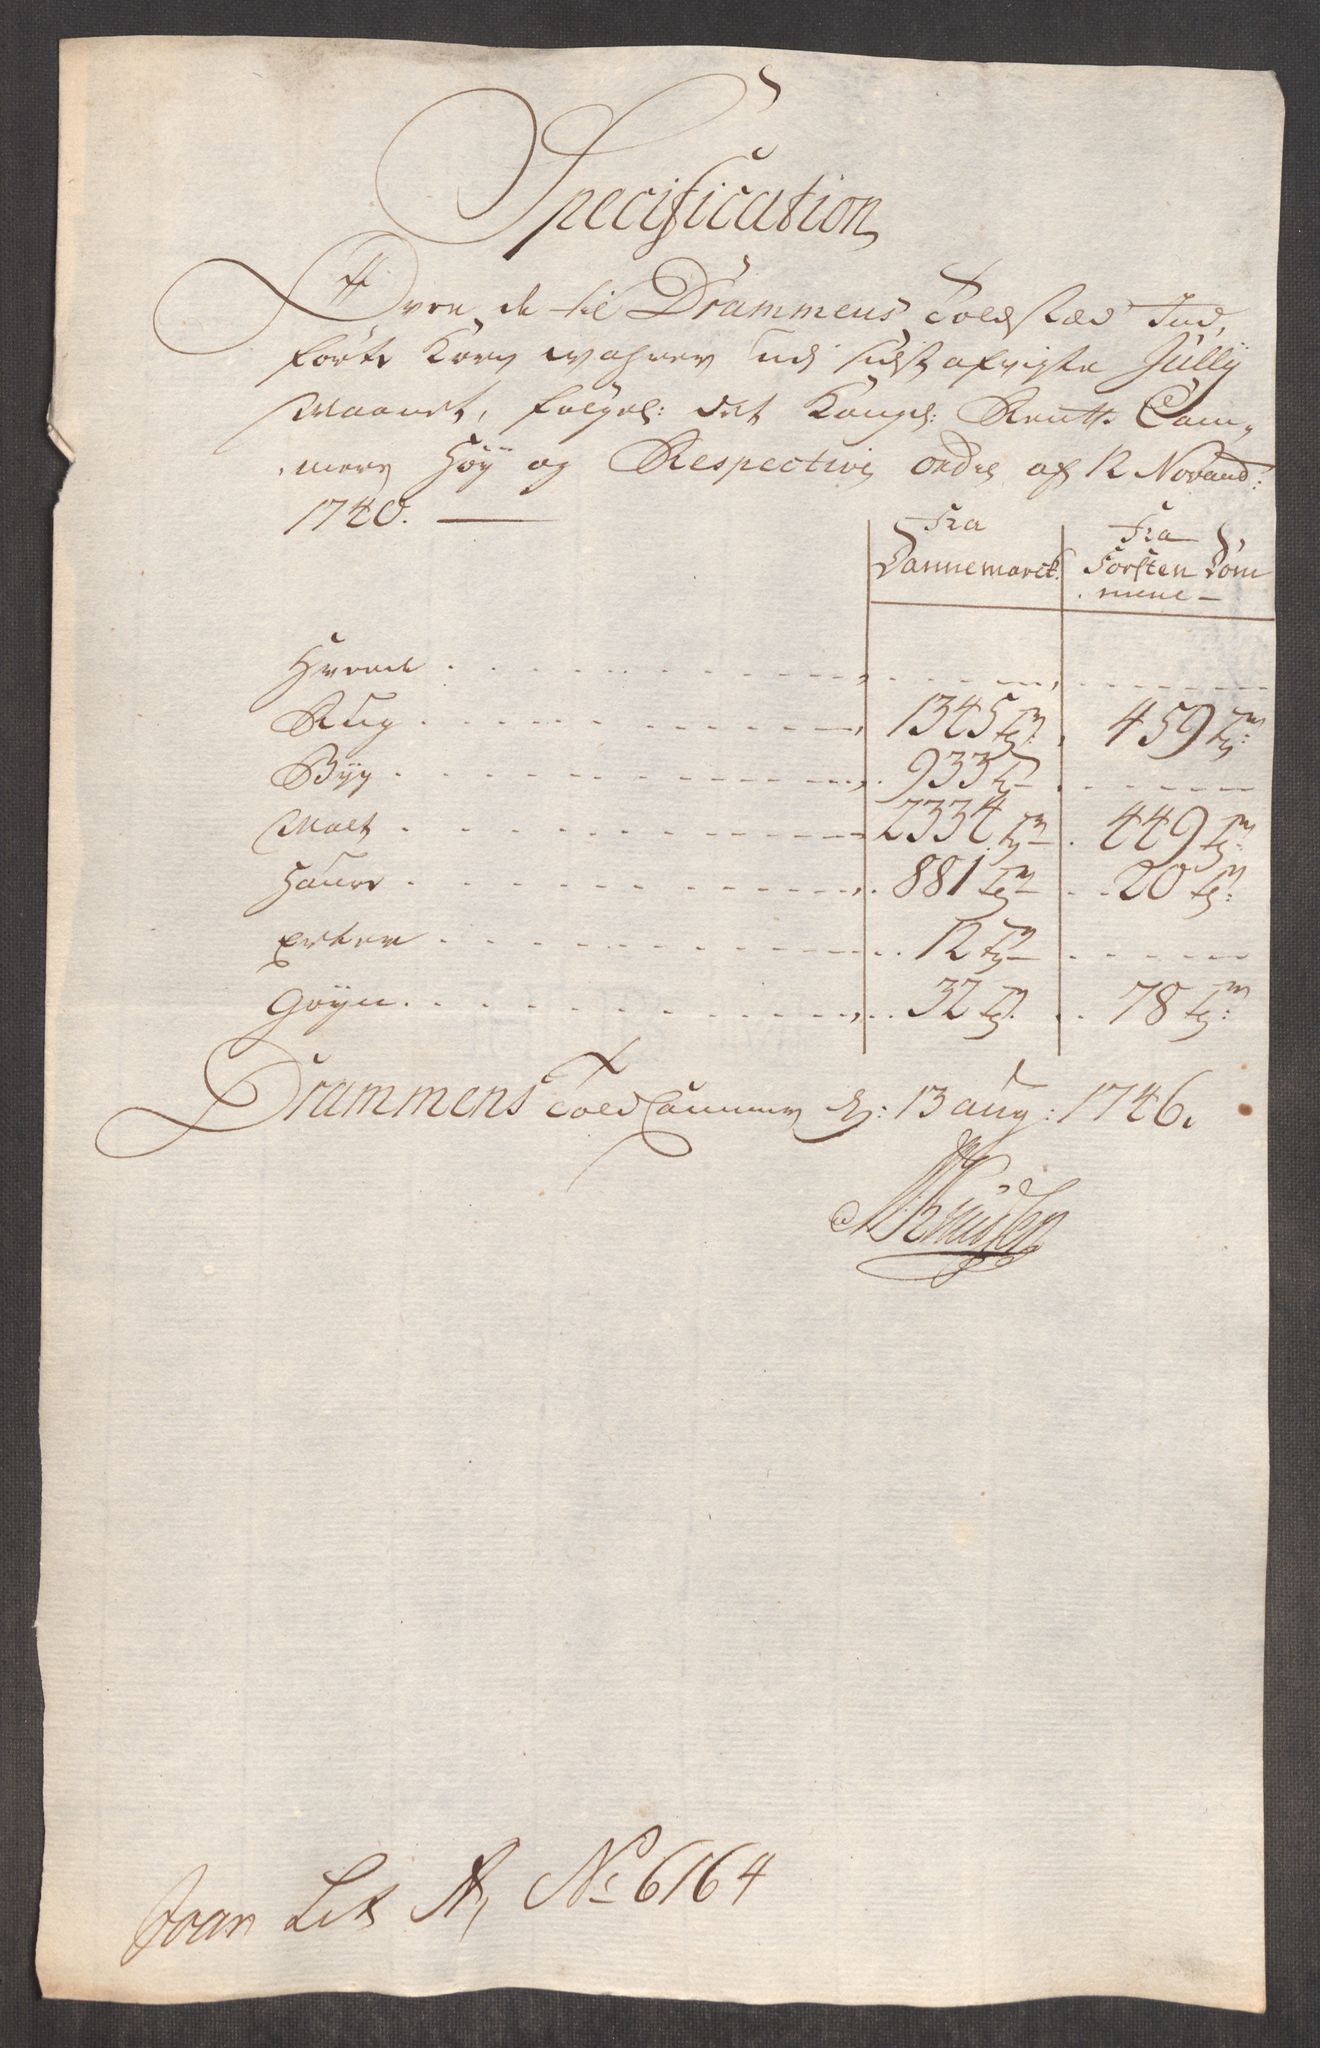 Specification
Over de til Drammens Toldstæd Ind,
førte Korn wahrer udi sidst afvigte Jully
Maanet, følgel: det Kongel: Rentte Cam,
mers Høy og Respective ordre af 12 Novemb:
1740. —
Fra Dannemarck. Fra Førstendømmene —
Hveede . . . . . .
Rug . . . 1345 Tr: 459 Tr:
Byg . . . 933 Tr . . .
Malt . . . 2334 Tr 449 Tr:
Haure . . . 881 Tr 20 Tr:
Erter . . . 12 Tr . . .
Gryn . . . 32 Tr. 78 Tr:
Drammens Told Cammer d: 13 aug: 1746.
Knudsen
Lit A, No 6164